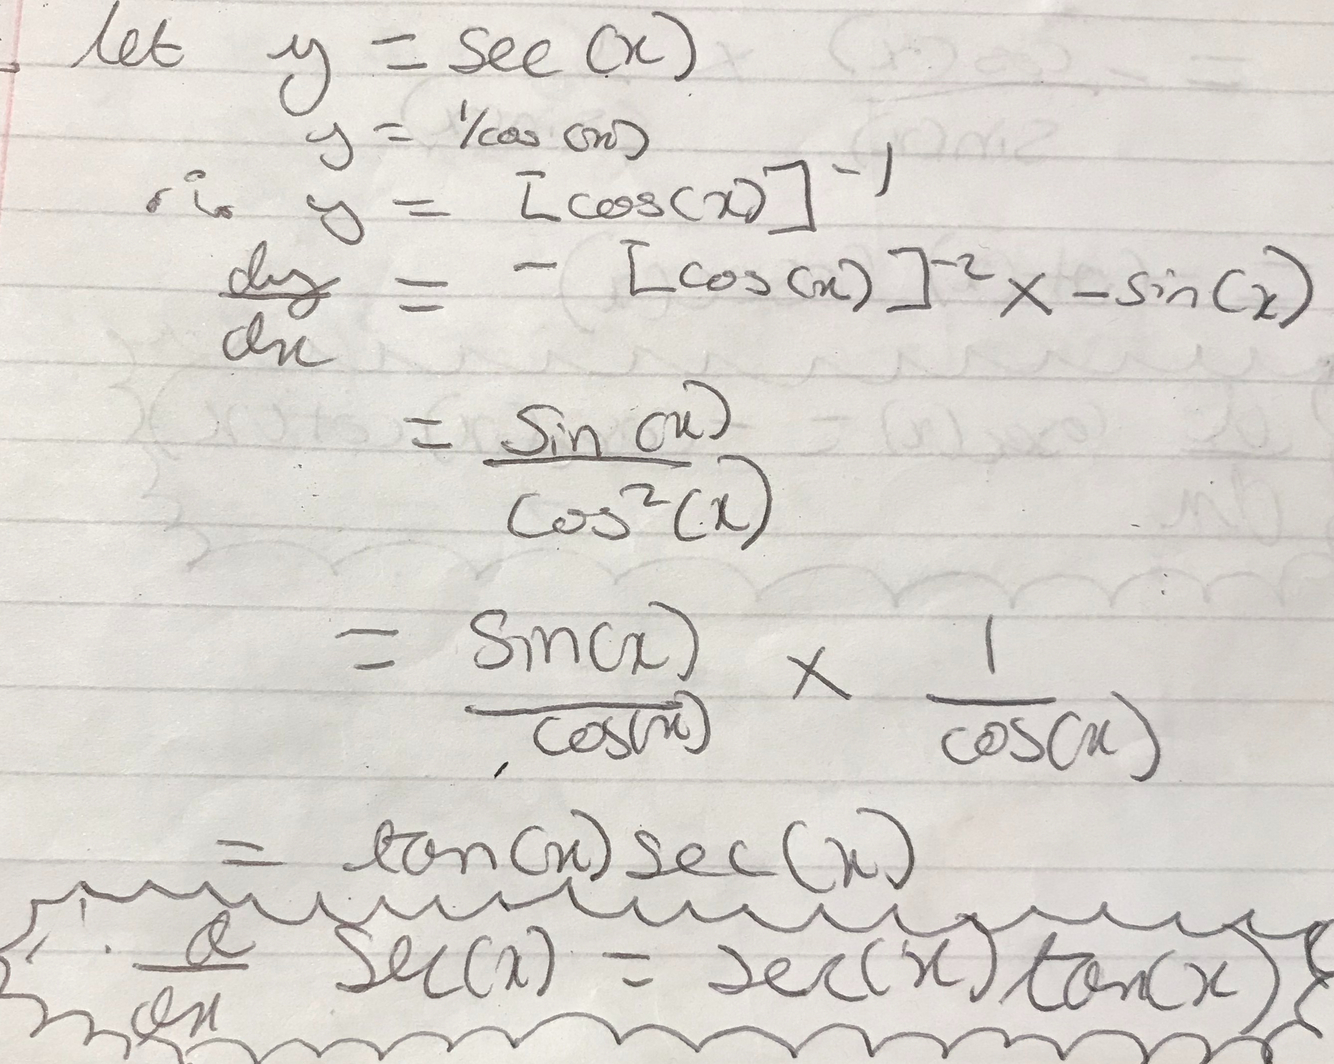 let y = sec(x)
y = 1/cos(x)
y = [cos(x)]^-1
dy/dx = - [cos(x)]^-2 × -sin(x)
= sin(x)/cos²(x)
= sin(x)/cos(x) × 1/cos(x)
= tan(x) sec(x)
∴ d/dx sec(x) = sec(x) tan(x)